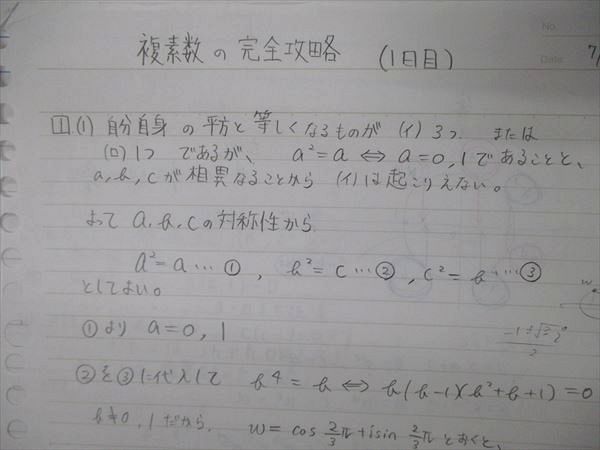 No.
Date 7/
複素数の完全攻略 (1日目)
1 (1) 自分自身の平方と等しくなるものが (イ) 3つ または
(ロ) 1つ であるが、 a² = a ⇔ a = 0, 1 であることと、
a, b, c が相異なることから (イ)は起こりえない。
よって a, b, c の対称性から
a² = a … ① , b² = c … ② , c² = b … ③
としてよい。
①より a = 0, 1
②を③に代入して b⁴ = b ⇔ b(b-1)(b²+b+1) = 0
b ≠ 0, 1 だから, w = cos 2/3 π + i sin 2/3 π とおくと、
w
-1+√3i/2